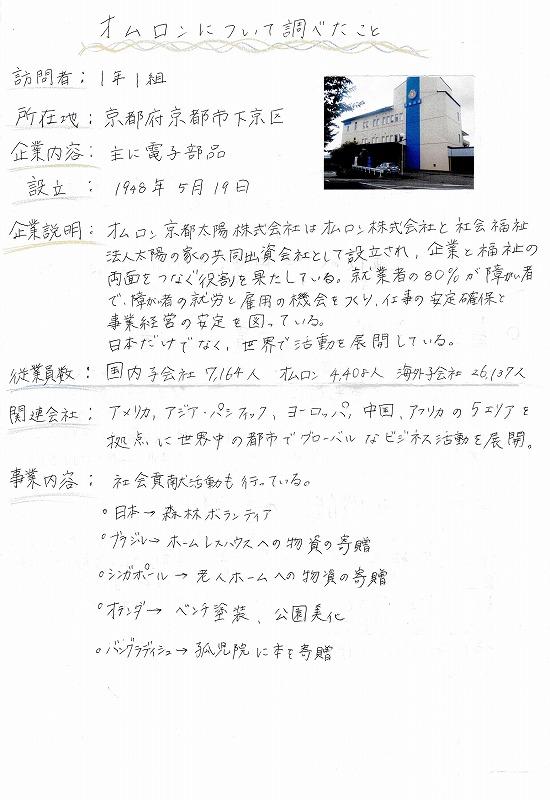 オムロンについて調べたこと
訪問者: 1年1組
所在地: 京都府京都市下京区
企業内容: 主に電子部品
設立 : 1948年5月19日
企業説明: オムロン京都太陽株式会社はオムロン株式会社と社会福祉
法人太陽の家の共同出資会社として設立され、企業と福祉の
両面をつなぐ役割を果たしている。就業者の80%が障がい者
で、障がい者の就労と雇用の機会をつくり、仕事の安定確保と
事業経営の安定を図っている。
日本だけでなく、世界で活動を展開している。
従業員数: 国内子会社 7,164人 オムロン 4,408人 海外子会社 26,137人
関連会社: アメリカ、アジア・パシフィック、ヨーロッパ、中国、アフリカの5エリアを
拠点に世界中の都市でグローバルなビジネス活動を展開。
事業内容: 社会貢献活動も行っている。
○日本→森林ボランティア
○ブラジル→ホームレスハウスへの物資の寄贈
○シンガポール→老人ホームへの物資の寄贈
○オランダ→ベンチ塗装、公園美化
○バングラディシュ→孤児院に本を寄贈